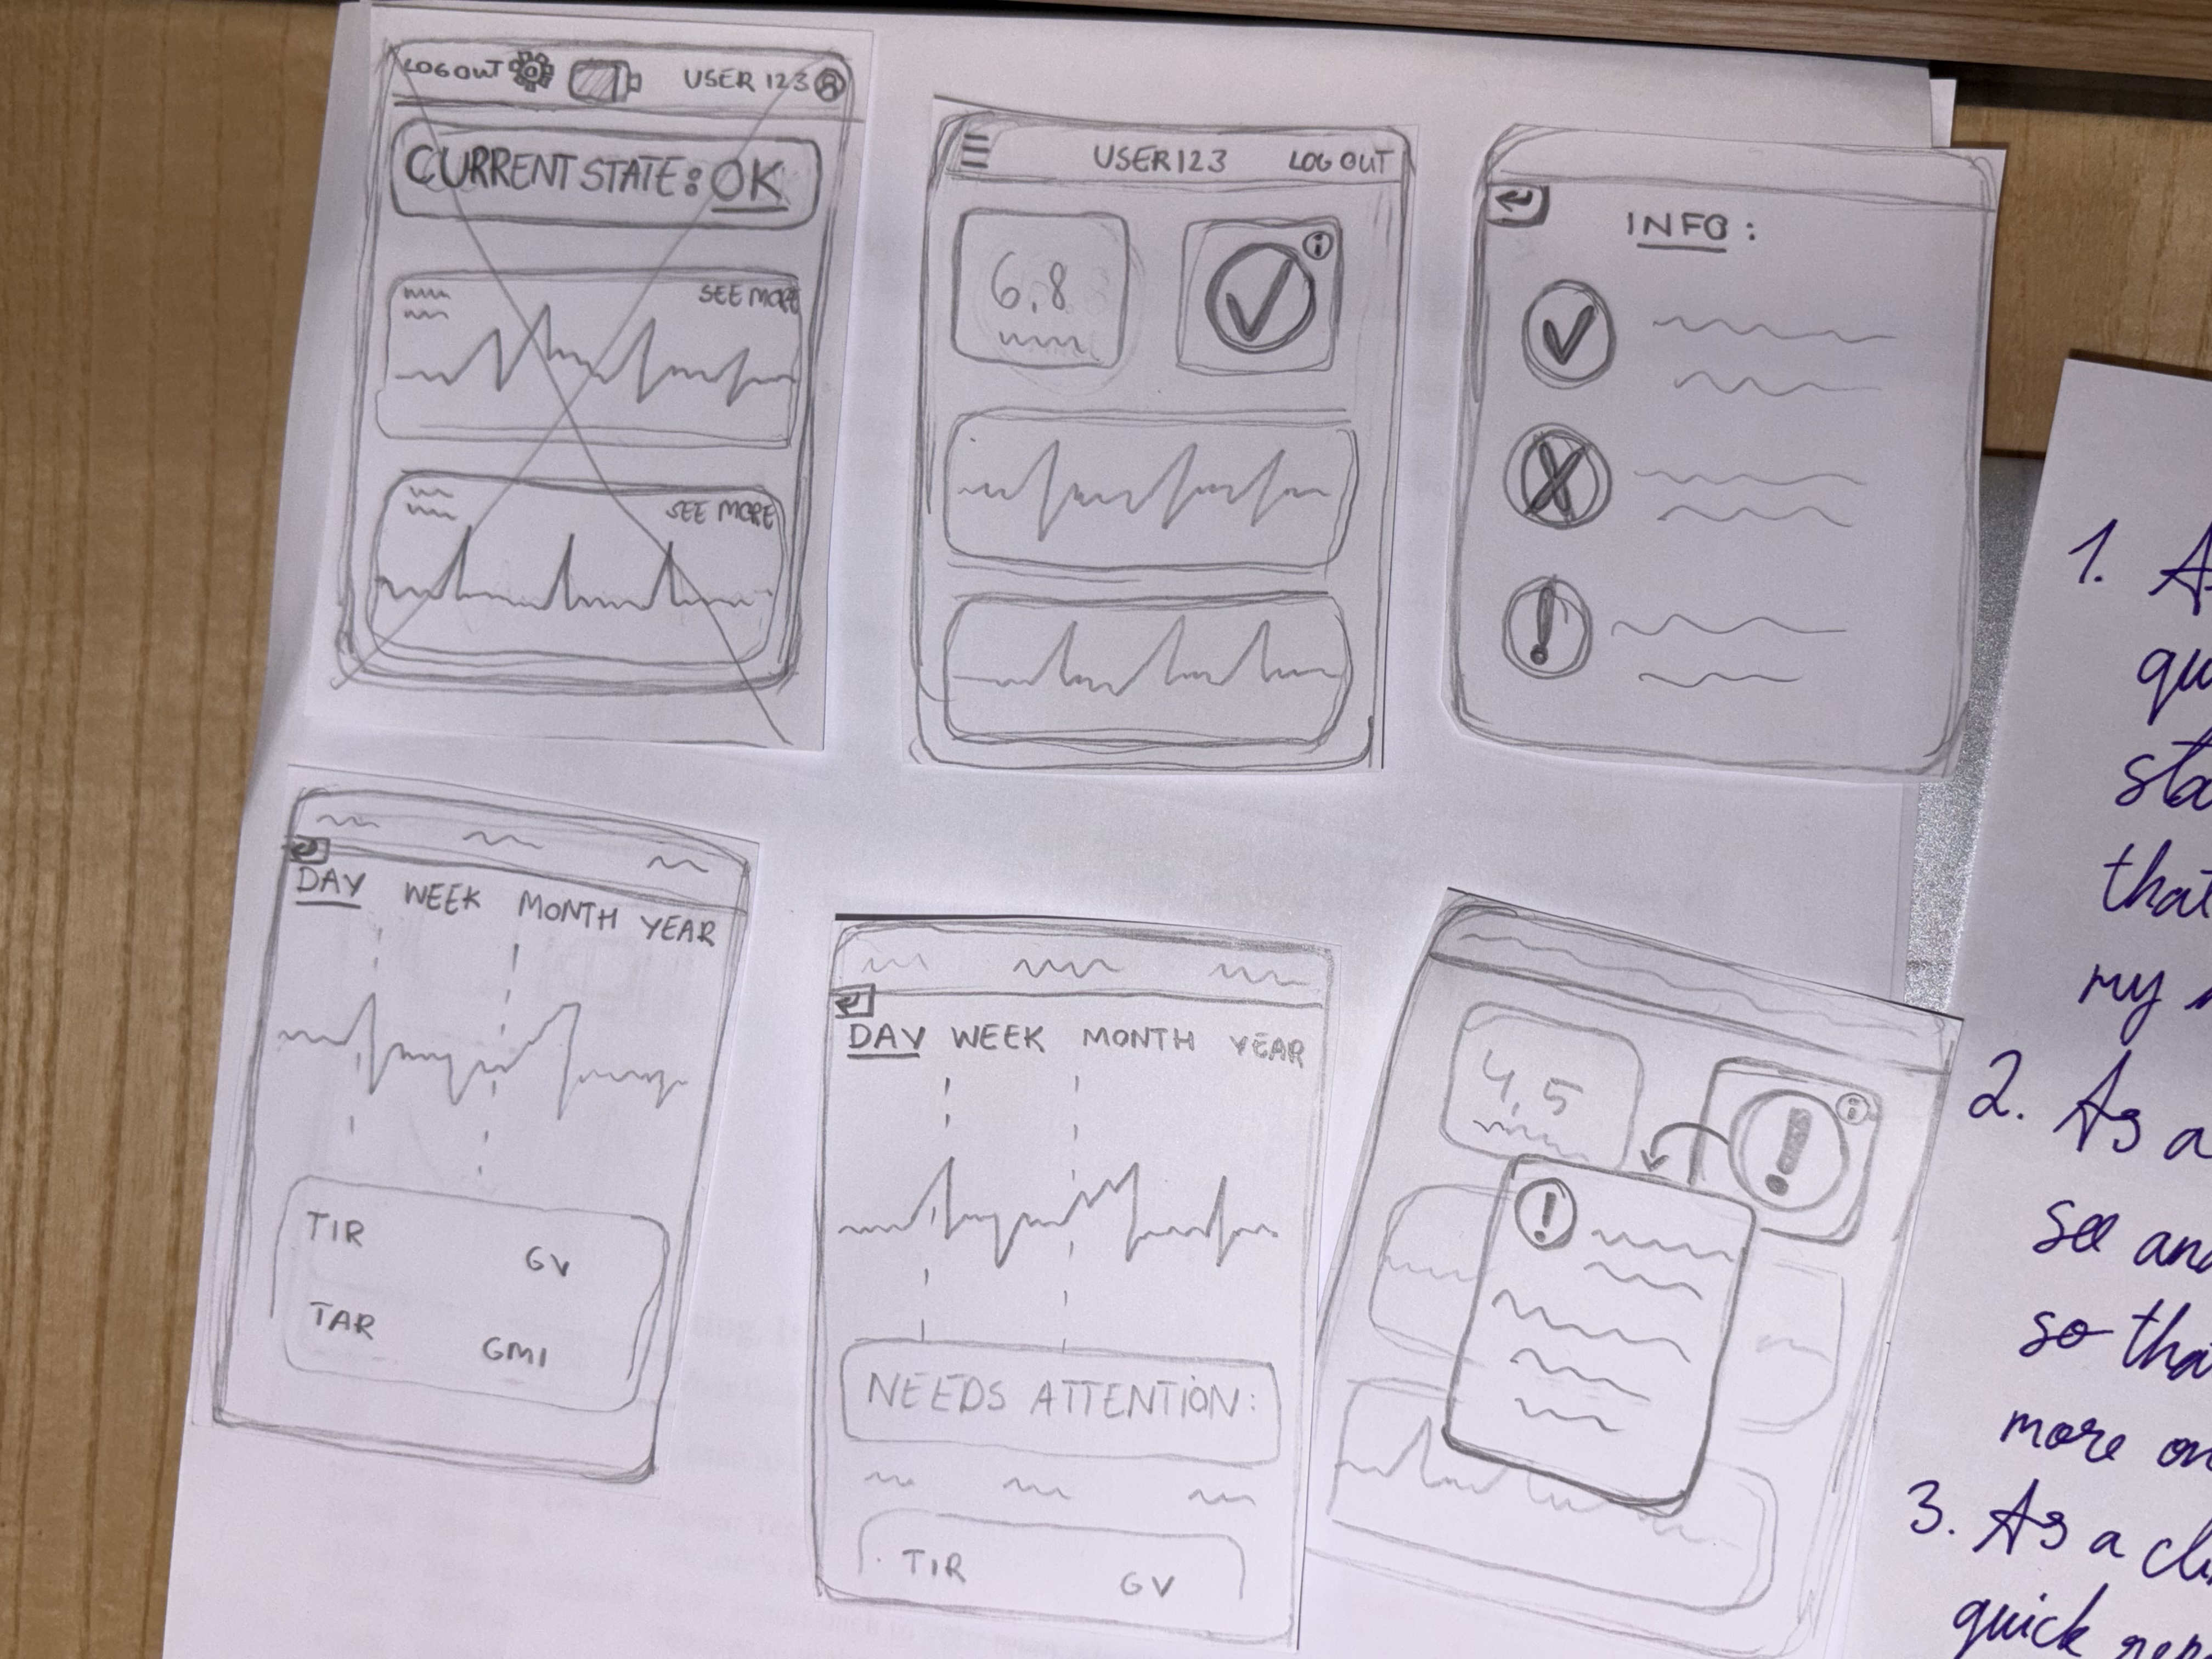 LOGOUT USER 123
CURRENT STATE: OK
SEE MORE
SEE MORE
USER123 LOG OUT
6,8
i
INFO:
!
DAY WEEK MONTH YEAR
TIR GV
TAR GMI
DAY WEEK MONTH YEAR
NEEDS ATTENTION:
TIR GV
4,5
! i
!
1. As
that
my
2. As a
see and
so tha
more on
3. As a cl
quick rep